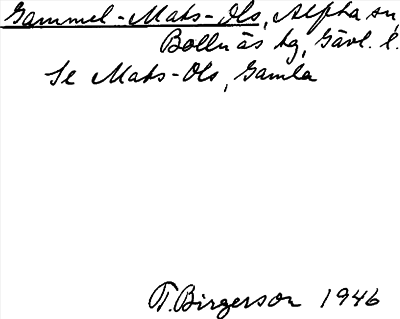 Gammel-Mats-Ols, Alpha sn,
Bollnäs tg, Gävl. l.
Se Mats-Ols, Gamla
T. Birgerson 1946